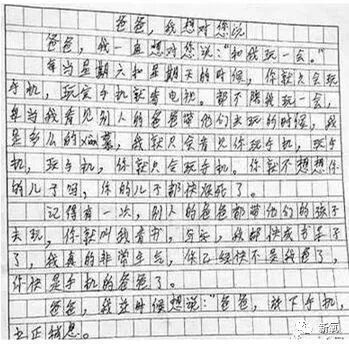 爸爸，我想对您说
爸爸，我一直想对您说："和我玩一会。"
每当星期六和星期天的时候，你就只会玩
手机，玩完手机就看电视。都不陪我玩一会，
每当我看见别人的爸爸带他们去玩的时候，我
是多么的羡慕，我就只会看见你玩手机，玩手
机，玩手机，你就只会玩手机。你就不想想你
的儿子吗，你的儿子都快疯了。
记得有一次，别人的爸爸都带他们的孩子
去玩，你就叫我看书，后来，我都快成书呆子
了，我真的非常生气，你已经快不是我爸了，
你快是手机的爸爸了。
爸爸，我这时候想说："爸爸，放下手机，
新氧